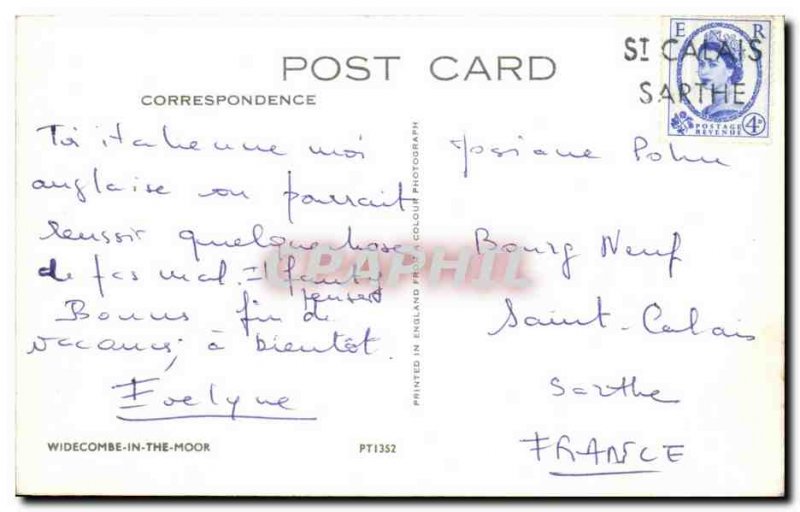 POST CARD
CORRESPONDENCE
Toi italienne moi
anglaise on pourrait
reussir quelque chose
de pas mal. Il faut y
penser
Bonne fin de
vacances, à bientôt.
Evelyne
WIDECOMBE-IN-THE-MOOR
PT1352
PRINTED IN ENGLAND FROM A COLOUR PHOTOGRAPH
CPAPHIL
E R
POSTAGE
REVENUE 4D
ST CALAIS
SARTHE
Josiane
Bourg Neuf
Saint-Calais
Sarthe
FRANCE